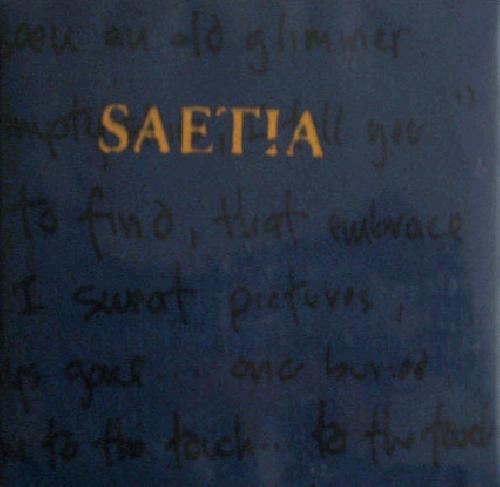 an old glimmer
SAETIA
you
to find, that embrace
I sweat pictures,
gone ... once buried,
to the touch... to the touch